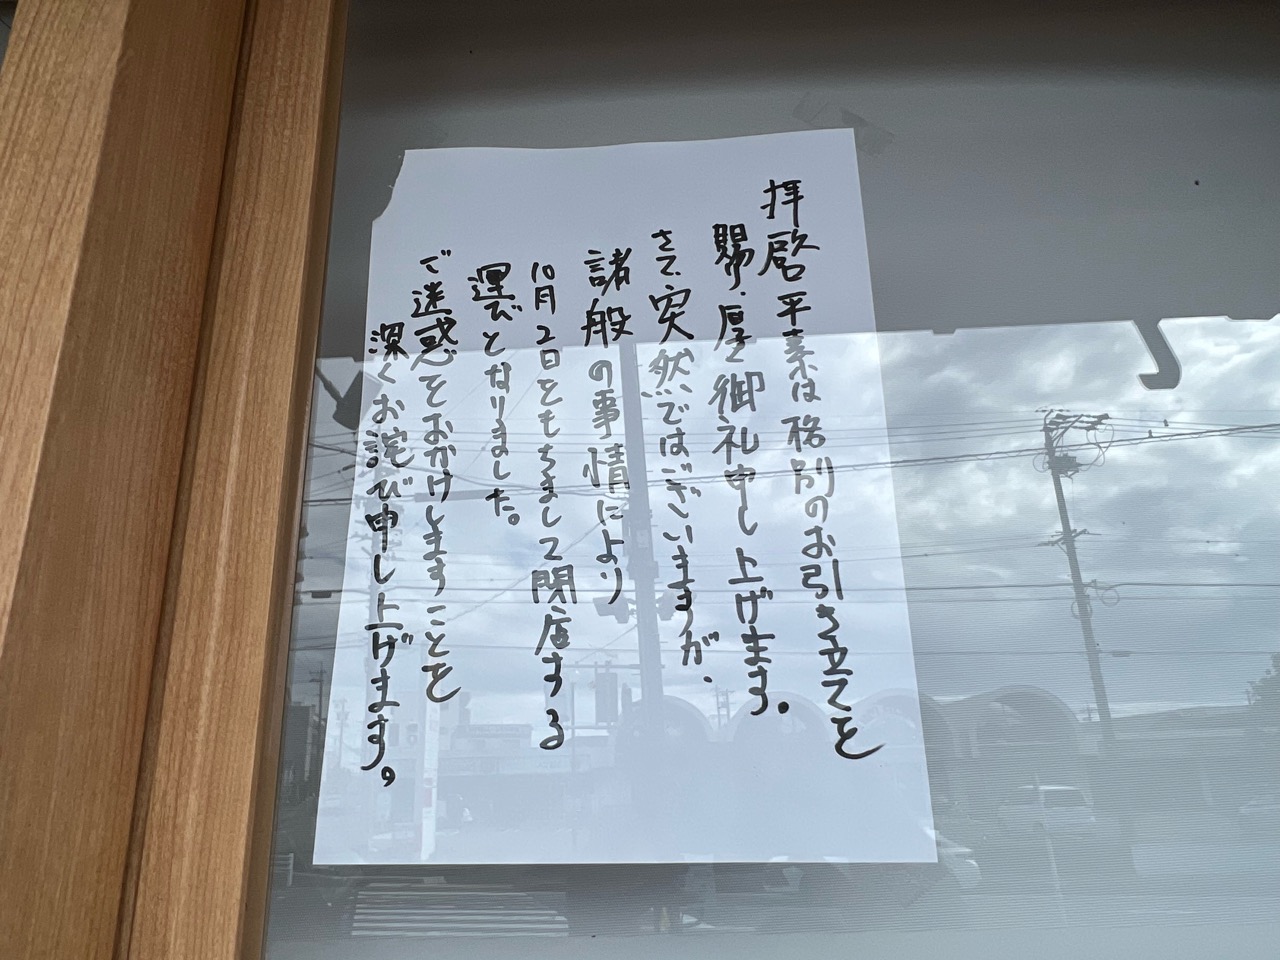 拝啓 平素は格別のお引き立てを
賜り、厚く御礼申し上げます。
さて、突然ではございますが、
諸般の事情により
10月2日ともちまして閉店する
運びとなりました。
ご迷惑をおかけしますことを
深くお詫び申し上げます。